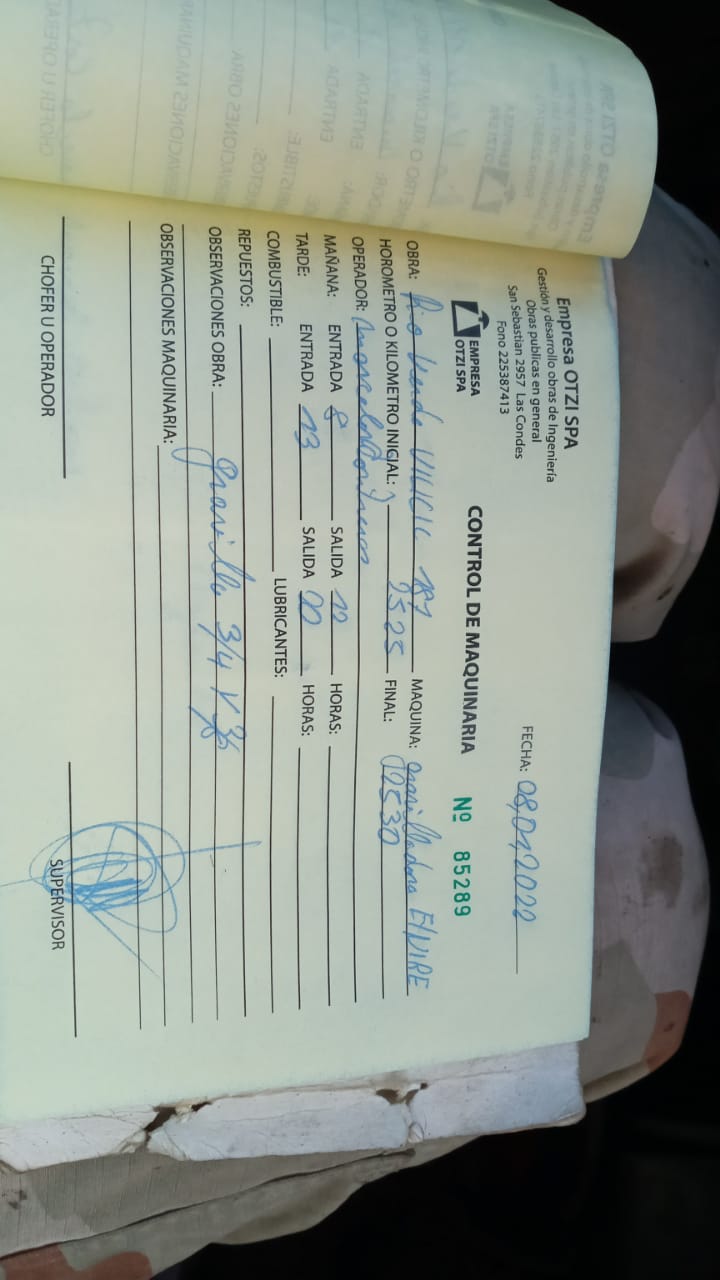 Empresa OTZI SPA
Gestión y desarrollo obras de Ingeniería
Obras publicas en general
San Sebastian 2957 Las Condes
Fono 225387413
FECHA: 08,01,2022
EMPRESA
OTZI SPA
CONTROL DE MAQUINARIA Nº 85289
OBRA: Rio Verde 181 MAQUINA: gravilladora
HOROMETRO O KILOMETRO INICIAL: 2525 FINAL: 2530
OPERADOR: Marcelo Contreras
MAÑANA: ENTRADA 8 SALIDA 12 HORAS:
TARDE: ENTRADA 13 SALIDA 20 HORAS:
COMBUSTIBLE: LUBRICANTES:
REPUESTOS:
OBSERVACIONES OBRA: gravilla 3/4 Y
OBSERVACIONES MAQUINARIA:
CHOFER U OPERADOR SUPERVISOR